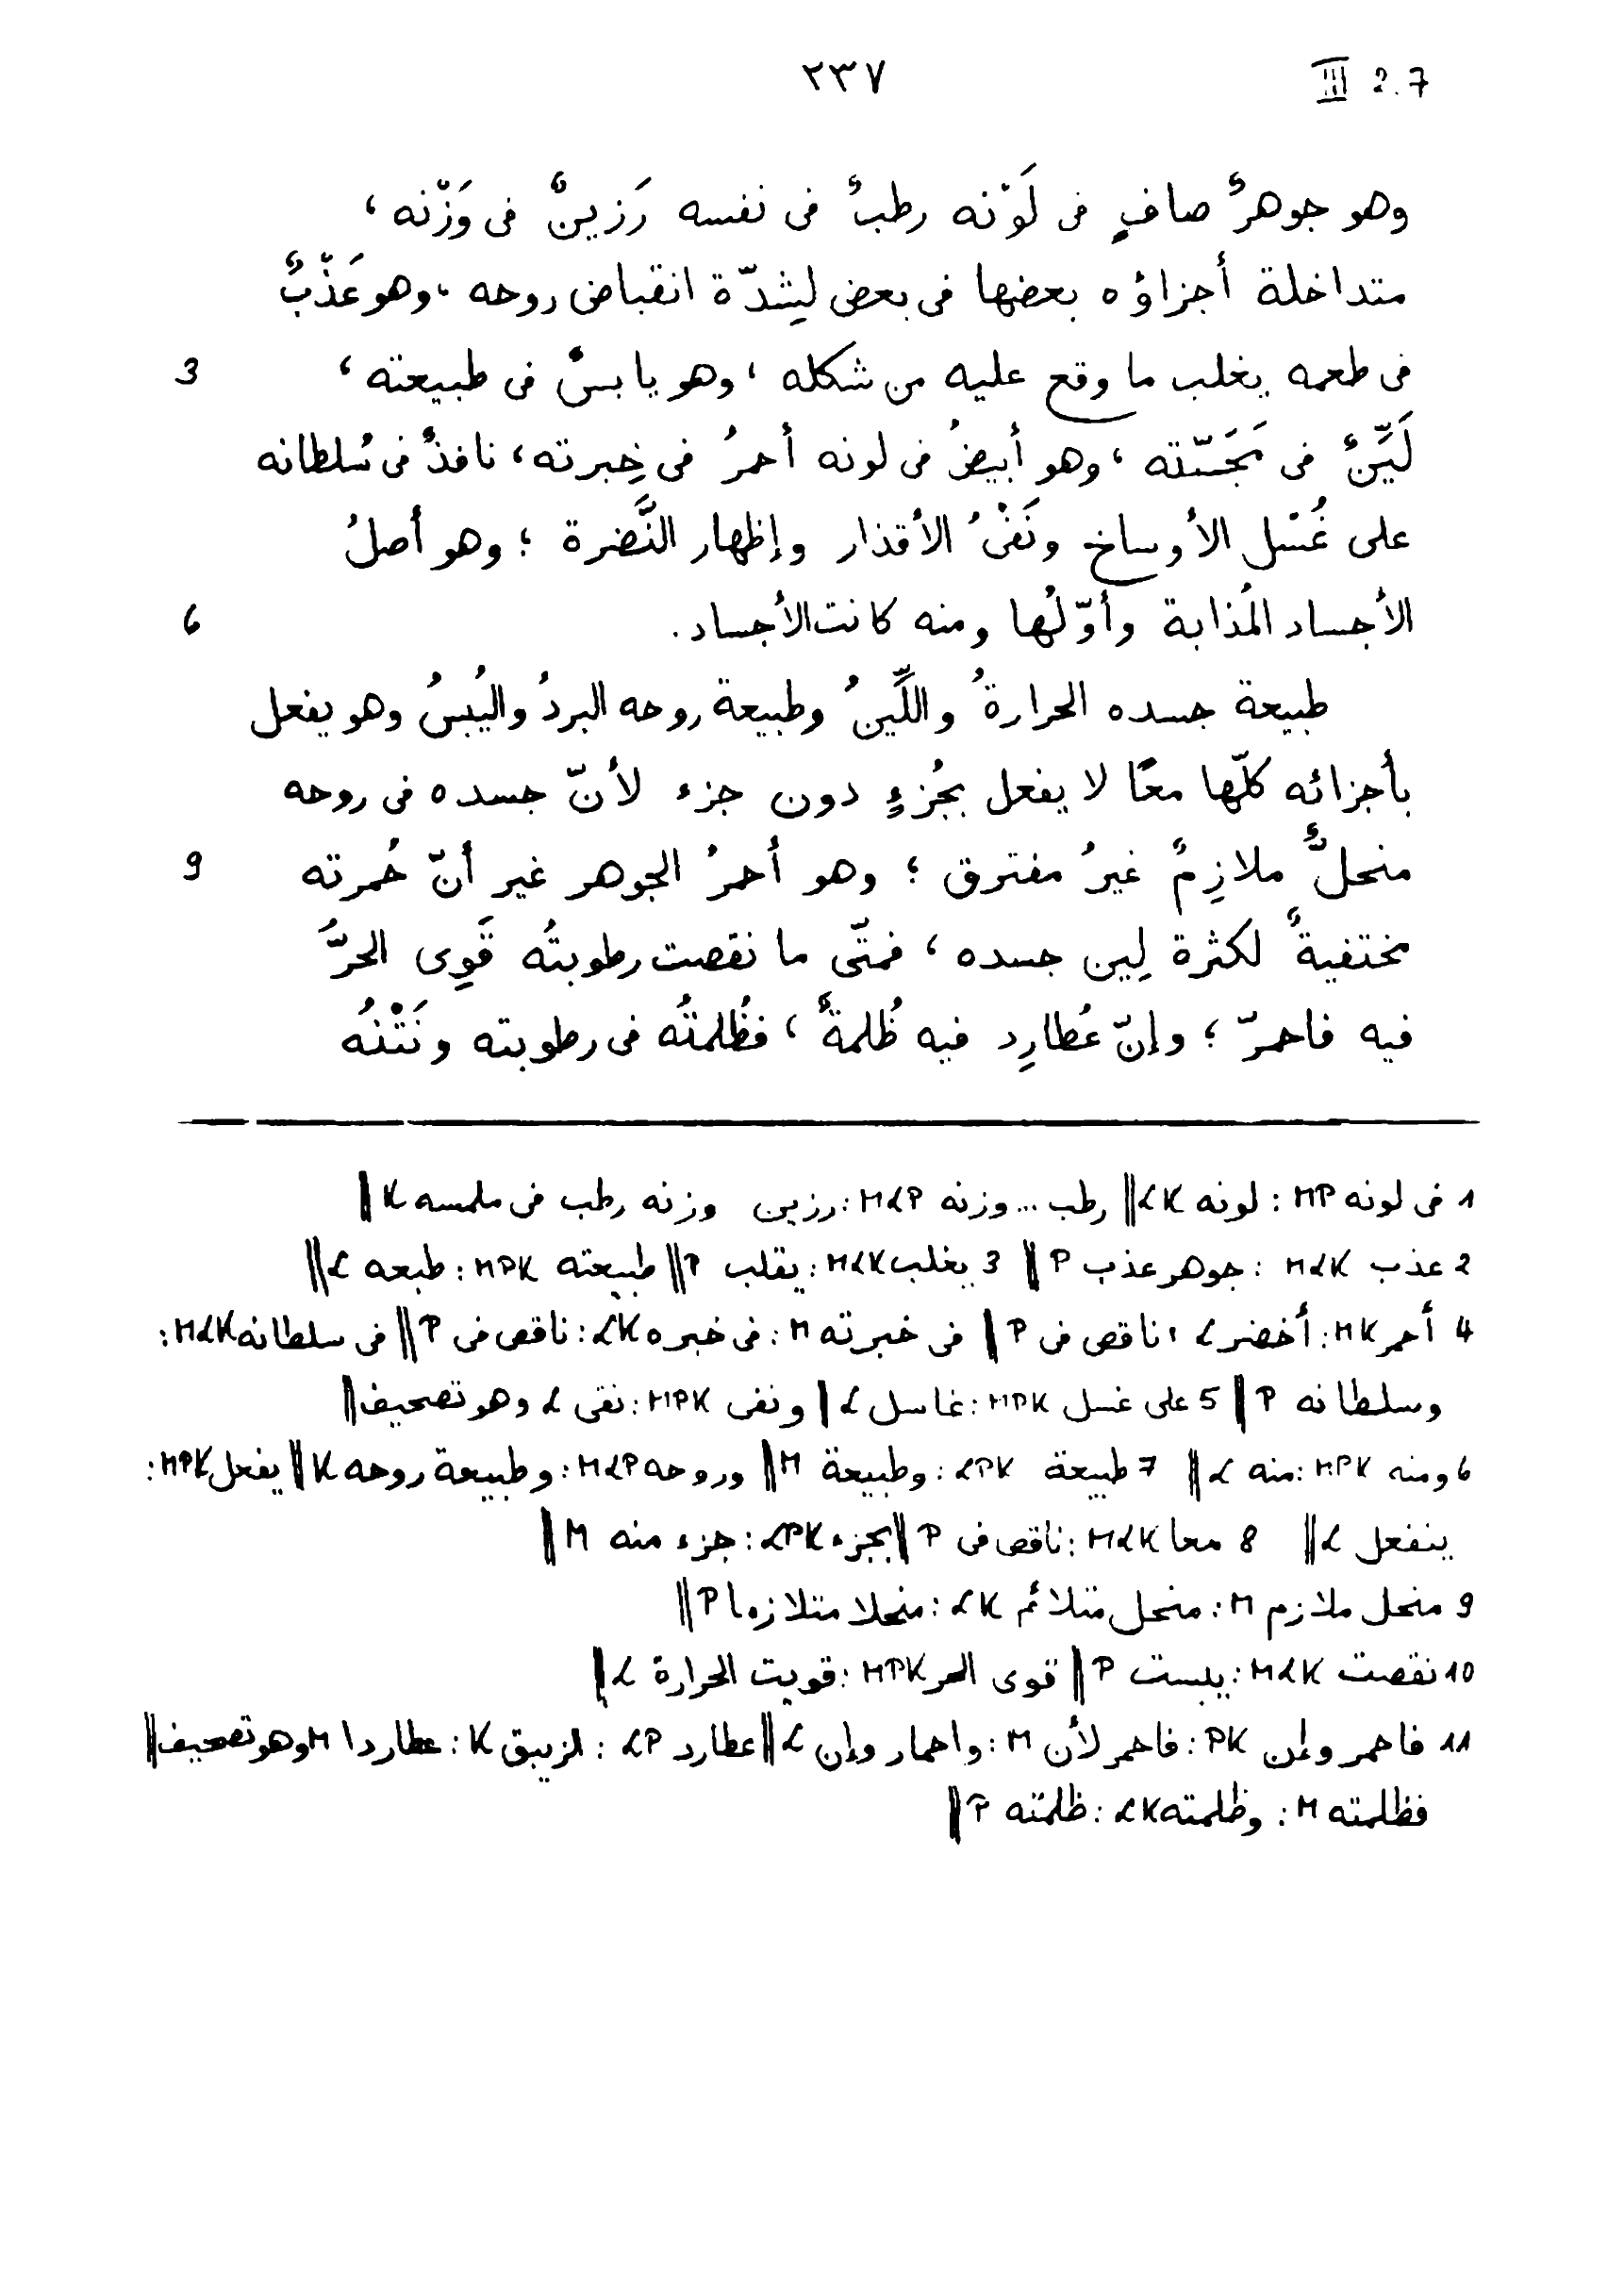 ٢٣٧ III 2.7
وهو جوهرٌ صافٍ فى لَوْنه رطبٌ فى نفسه رَزينٌ فى وَزْنه ،
متداخلة أجزاؤه بعضها فى بعض لِشدّة انقباض روحه ، وهو عَذْبٌ
فى طعمه يغلب ما وقع عليه من شكله ، وهو يابسٌ فى طبيعته ، 3
لَيِّنٌ فى مَجَسّته ، وهو أبيضُ فى لونه أحمرُ فى خِبرته ، نافذٌ فى سُلطانه
على غُسْل الأوساخ ونَفْىُ الأقذار وإظهار النَّضرة ؛ وهو أصلُ
الأجساد المُذابة وأوّلُها ومنه كانت الأجساد . 6
طبيعة جسده الحرارةُ واللِّينُ وطبيعة روحه البردُ واليُبسُ وهو يفعل
بأجزائه كلّها معًا لا يفعل بجُزءٍ دون جزء لأنّ جسده فى روحه
منحلٌّ ملازِمٌ غيرُ مفترق ؛ وهو أحمرُ الجوهر غير أنّ حُمرته 9
مختفيةٌ لكثرة لِين جسده ، فمتّى ما نقصت رطوبتُه قَوِى الحرُّ
فيه فاحمرّ ؛ وإنّ عُطارِد فيه ظُلمةٌ ، فظُلمتُه فى رطوبته ونَتْنُه
1 فى لونه MP : لونه LK || رطب ... وزنه MLP : رزين وزنه رطب فى ملمسه K ||
2 عذب MLK : جوهر عذب P || 3 يغلب MLK : يقلب P || طبيعته MPK : طبعه L ||
4 أحمر MK : أخضر L ، ناقص فى P || فى خبرته M : فى خبره LK : ناقص فى P || فى سلطانه MLK :
وسلطانه P || 5 على غسل MPK : غاسل L || ونفى MPK : نقى L وهو تصحيف ||
6 ومنه MPK : منه L || 7 طبيعة LPK : وطبيعة M || وروحه MLP : وطبيعة روحه K || يفعل MPK :
ينفعل L || 8 معا MLK : ناقص فى P || بجزء LPK : جزء منه M ||
9 منحل ملازم M : منحل متلائم LK : منحلا متلازما P ||
10 نقصت MLK : يبست P || قوى الحر MPK : قويت الحرارة L ||
11 فاحمر وإن PK : فاحمر لأن M : واحمار وإن L || عطارد LP : لزيبق K : عطاردا M وهو تصحيف ||
فظلمته M : وظلمته LK : ظلمته P ||